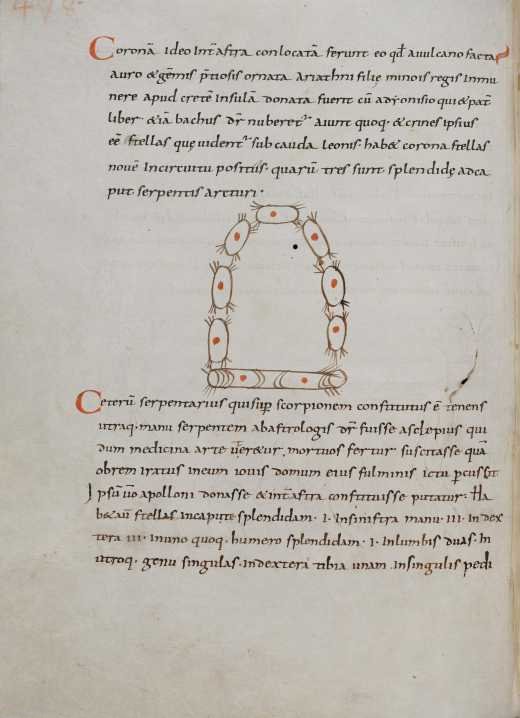 Coronā Ideo Int̄ astra conlocatā ferunt eo qd̄ auulcano facta
auro &gēmis p̄tiosis ornata ariathni filię minois regis Inmu
nere apud cretē Insulā donata fuerit cū adyonisio qui&pat̄
liber &iā bachus dr̄ nuberet᷑ aiunt quoq· &crines ipsius
eē stellas quę uident᷑ sub cauda leonis· hab& corona stellas
nouē Incircuitu positas· quarū tres sunt splendidę adca
put serpentis arcturi·
Ceterū serpentarius qui sup scorpionem constitutus ē tenens
utraq· manu serpentem abastrologis dr̄ fuisse asclepius qui
dum medicina arte uter&ur, mortuos fertur suscitasse quā
obrem iratus ineum iouis domum eius fulminis ictu ꝑcussit
Ipsū ūo apolloni donasse &int̄ astra constituisse putatur· Ha
b&aū stellas incapite splendidam· I· Insinistra manu· III· Index
tera III· Inuno quoq· humero splendidam· I· Inlumbis duas· In
utroq· genu singulas· Indextera tibia unam Insingulis pedi